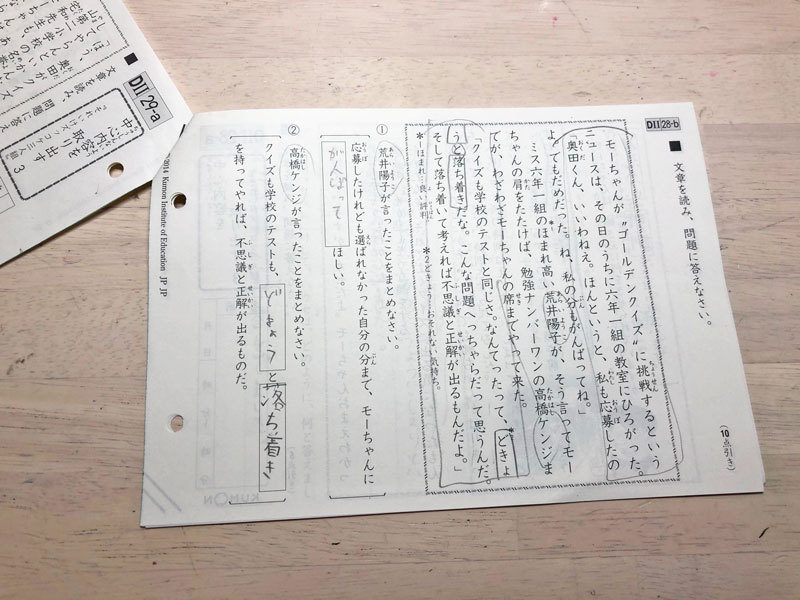 DII 28-b
■ 文章を読み、問題に答えなさい。
(10点引き)
モーちゃんが〝ゴールデンクイズ〟に挑戦するという
ニュースは、その日のうちに六年一組の教室にひろがった。
「奥田くん、いいわねえ。ほんというと、私も応募したの
よ。でもだめだった。ね、私の分もがんばってね。」
ミス六年一組のほまれ高い荒井陽子が、そう言ってモー
ちゃんの肩をたたけば、勉強ナンバーワンの高橋ケンジま
でが、わざわざモーちゃんの席までやって来た。
「クイズも学校のテストと同じさ。なんてったって、どきょ
うと落ち着きだな。こんな問題へっちゃらだって思うんだ。
そして落ち着いて考えれば不思議と正解が出るもんだよ。」
*1ほまれ…良い評判。 *2どきょう…おそれない気持ち。
① 荒井陽子が言ったことをまとめなさい。
応募したけれども選ばれなかった自分の分まで、モーちゃんに
がんばって ほしい。
② 高橋ケンジが言ったことをまとめなさい。
クイズも学校のテストも、どきょうと落ち着き
を持ってやれば、不思議と正解が出るものだ。
2014 Kumon Institute of Education JP JP
DII 29-a
中心内容を
取り出す 3
■ 文章を読み、問題に答え